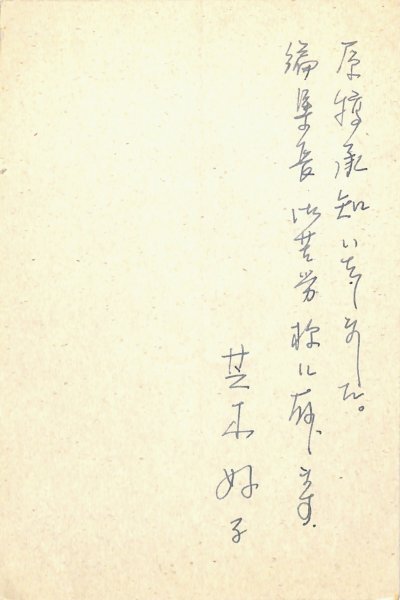 原稿承知いたしました。
編集長御苦労様に存じます。
芝木好子